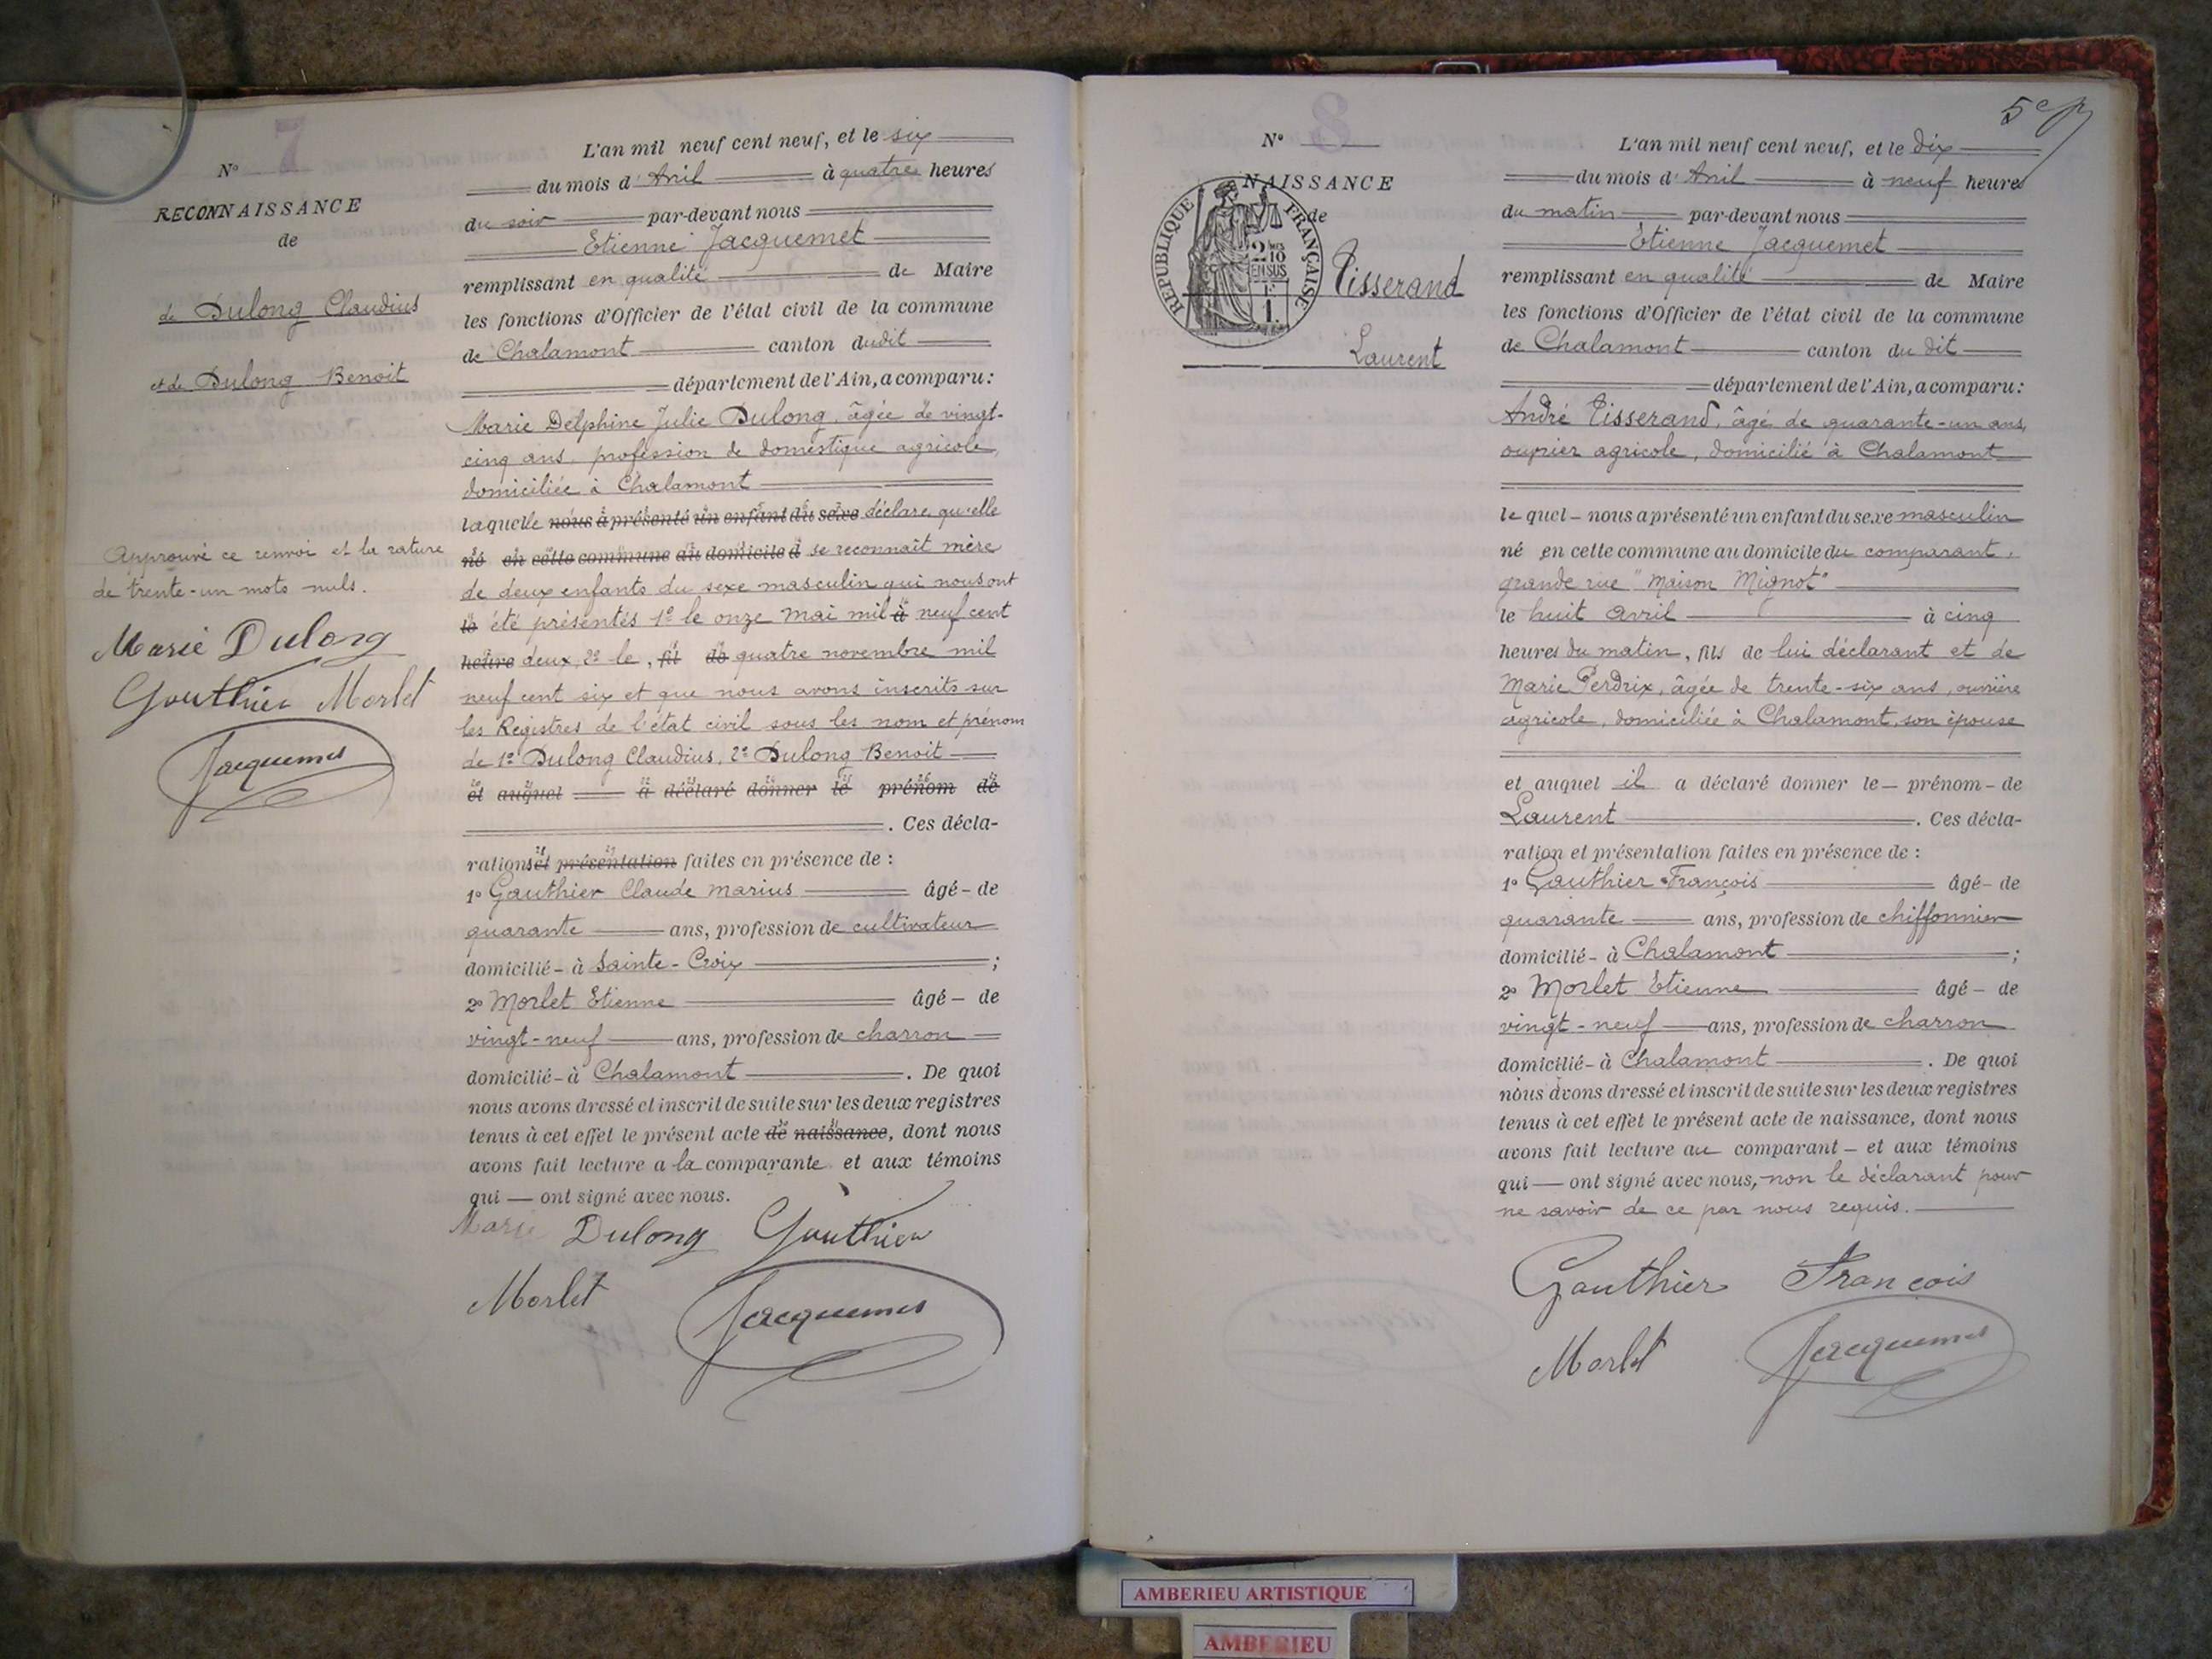 7
N°
RECONNAISSANCE
de
de Dulong Claudius
et de Dulong Benoit
Approuvé ce renvoi et la rature
de trente-un mots nuls.
Marie Dulong
Gauthier Morlet
Jacquemet
L'an mil neuf cent neuf, et le six
du mois d'Avril à quatre heures
du soir par-devant nous
Etienne Jacquemet
remplissant en qualité de Maire
les fonctions d'Officier de l'état civil de la commune
de Chalamont canton dudit
département de l'Ain, a comparu :
Marie Delphine Julie Dulong, âgée de vingt-
cinq ans, profession de domestique agricole,
domiciliée à Chalamont
laquelle nous a présenté un enfant du sexe déclare qu'elle
né en cette commune au domicile d se reconnaît mère
de deux enfants du sexe masculin qui nous ont
le été présentés 1° le onze mai mil à neuf cent
heure deux, 2° le, fil de quatre novembre mil
neuf cent six et que nous avons inscrits sur
les Registres de l'état civil sous les nom et prénom
de 1° Dulong Claudius, 2° Dulong Benoit
et auquel a déclaré donner le prénom de
. Ces décla-
rations et présentation faites en présence de :
1° Gauthier Claude Marius âgé - de
quarante ans, profession de cultivateur
domicilié - à Sainte-Croix ;
2° Morlet Etienne âgé - de
vingt-neuf ans, profession de charron
domicilié - à Chalamont . De quoi
nous avons dressé et inscrit de suite sur les deux registres
tenus à cet effet le présent acte de naissance, dont nous
avons fait lecture a la comparante et aux témoins
qui — ont signé avec nous.
Marie Dulong Gauthier
Morlet Jacquemet
5e
N° 8
NAISSANCE
de
RÉPUBLIQUE FRANÇAISE
2/10
EN SUS
1.
Tisserand
Laurent
L'an mil neuf cent neuf, et le dix
du mois d'Avril à neuf heures
du matin par-devant nous
Etienne Jacquemet
remplissant en qualité de Maire
les fonctions d'Officier de l'état civil de la commune
de Chalamont canton du dit
département de l'Ain, a comparu :
André Tisserand, âgé de quarante-un ans,
ouvrier agricole, domicilié à Chalamont
le quel - nous a présenté un enfant du sexe masculin
né en cette commune au domicile du comparant,
grande rue "Maison Mignot"
le huit avril à cinq
heures du matin, fils de lui déclarant et de
Marie Perdrix, âgée de trente-six ans, ouvrière
agricole, domiciliée à Chalamont, son épouse
et auquel il a déclaré donner le - prénom - de
Laurent . Ces décla-
ration et présentation faites en présence de :
1° Gauthier François âgé - de
quarante ans, profession de chiffonnier
domicilié - à Chalamont ;
2° Morlet Etienne âgé - de
vingt-neuf ans, profession de charron
domicilié - à Chalamont . De quoi
nous avons dressé et inscrit de suite sur les deux registres
tenus à cet effet le présent acte de naissance, dont nous
avons fait lecture au comparant - et aux témoins
qui — ont signé avec nous, non le déclarant pour
ne savoir de ce par nous requis.
Gauthier François
Morlet Jacquemet
AMBERIEU ARTISTIQUE
AMBERIEU